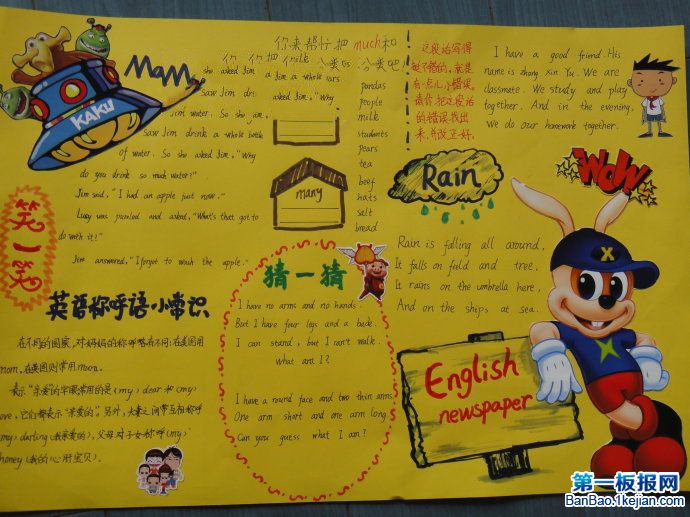 KAKU
Mam
she asked Jim
saw Jim drink a whole bottle
of water. So she asked Jim, "Why
do you drink so much water?"
Jim said, "I had an apple just now."
Lucy was puzzled and asked, "What's that got to
do with it?"
Jim answered, "I forgot to wash the apple."
笑一笑
英语称呼语小常识
在不同的国家,对妈妈的称呼略有不同:在英国用
mum,在美国则常用mom.
表示“亲爱的”字眼常用的是(my) dear 和 (my)
love,它们都表示“亲爱的”。另外,夫妻之间常互相称呼
(my) darling (我亲爱的),父母对子女称呼(my)
honey (我的心肝宝贝)。
你来帮忙把much和
分类吧!
many
pandas
people
milk
students
pears
tea
beef
hats
salt
bread
猜一猜
I have no arms and no hands.
But I have four legs and a back.
I can stand, but I can't walk.
What am I?
I have a round face and two thin arms.
One arm short and one arm long.
Can you guess what I am?
这段话写得
挺不错的,就是
有一点儿小错误,
请你把这段话
的错误找出
来,并改正好。
I have a good friend. His
name is zhang Xin Yu. We are
classmate. We study and play
together. And in the evening,
We do our homework together.
WOW
Rain
Rain is falling all around,
It falls on field and tree,
It rains on the umbrella here,
And on the ships at sea.
X
English
newspaper
第一板报网
BanBao.1kejian.com